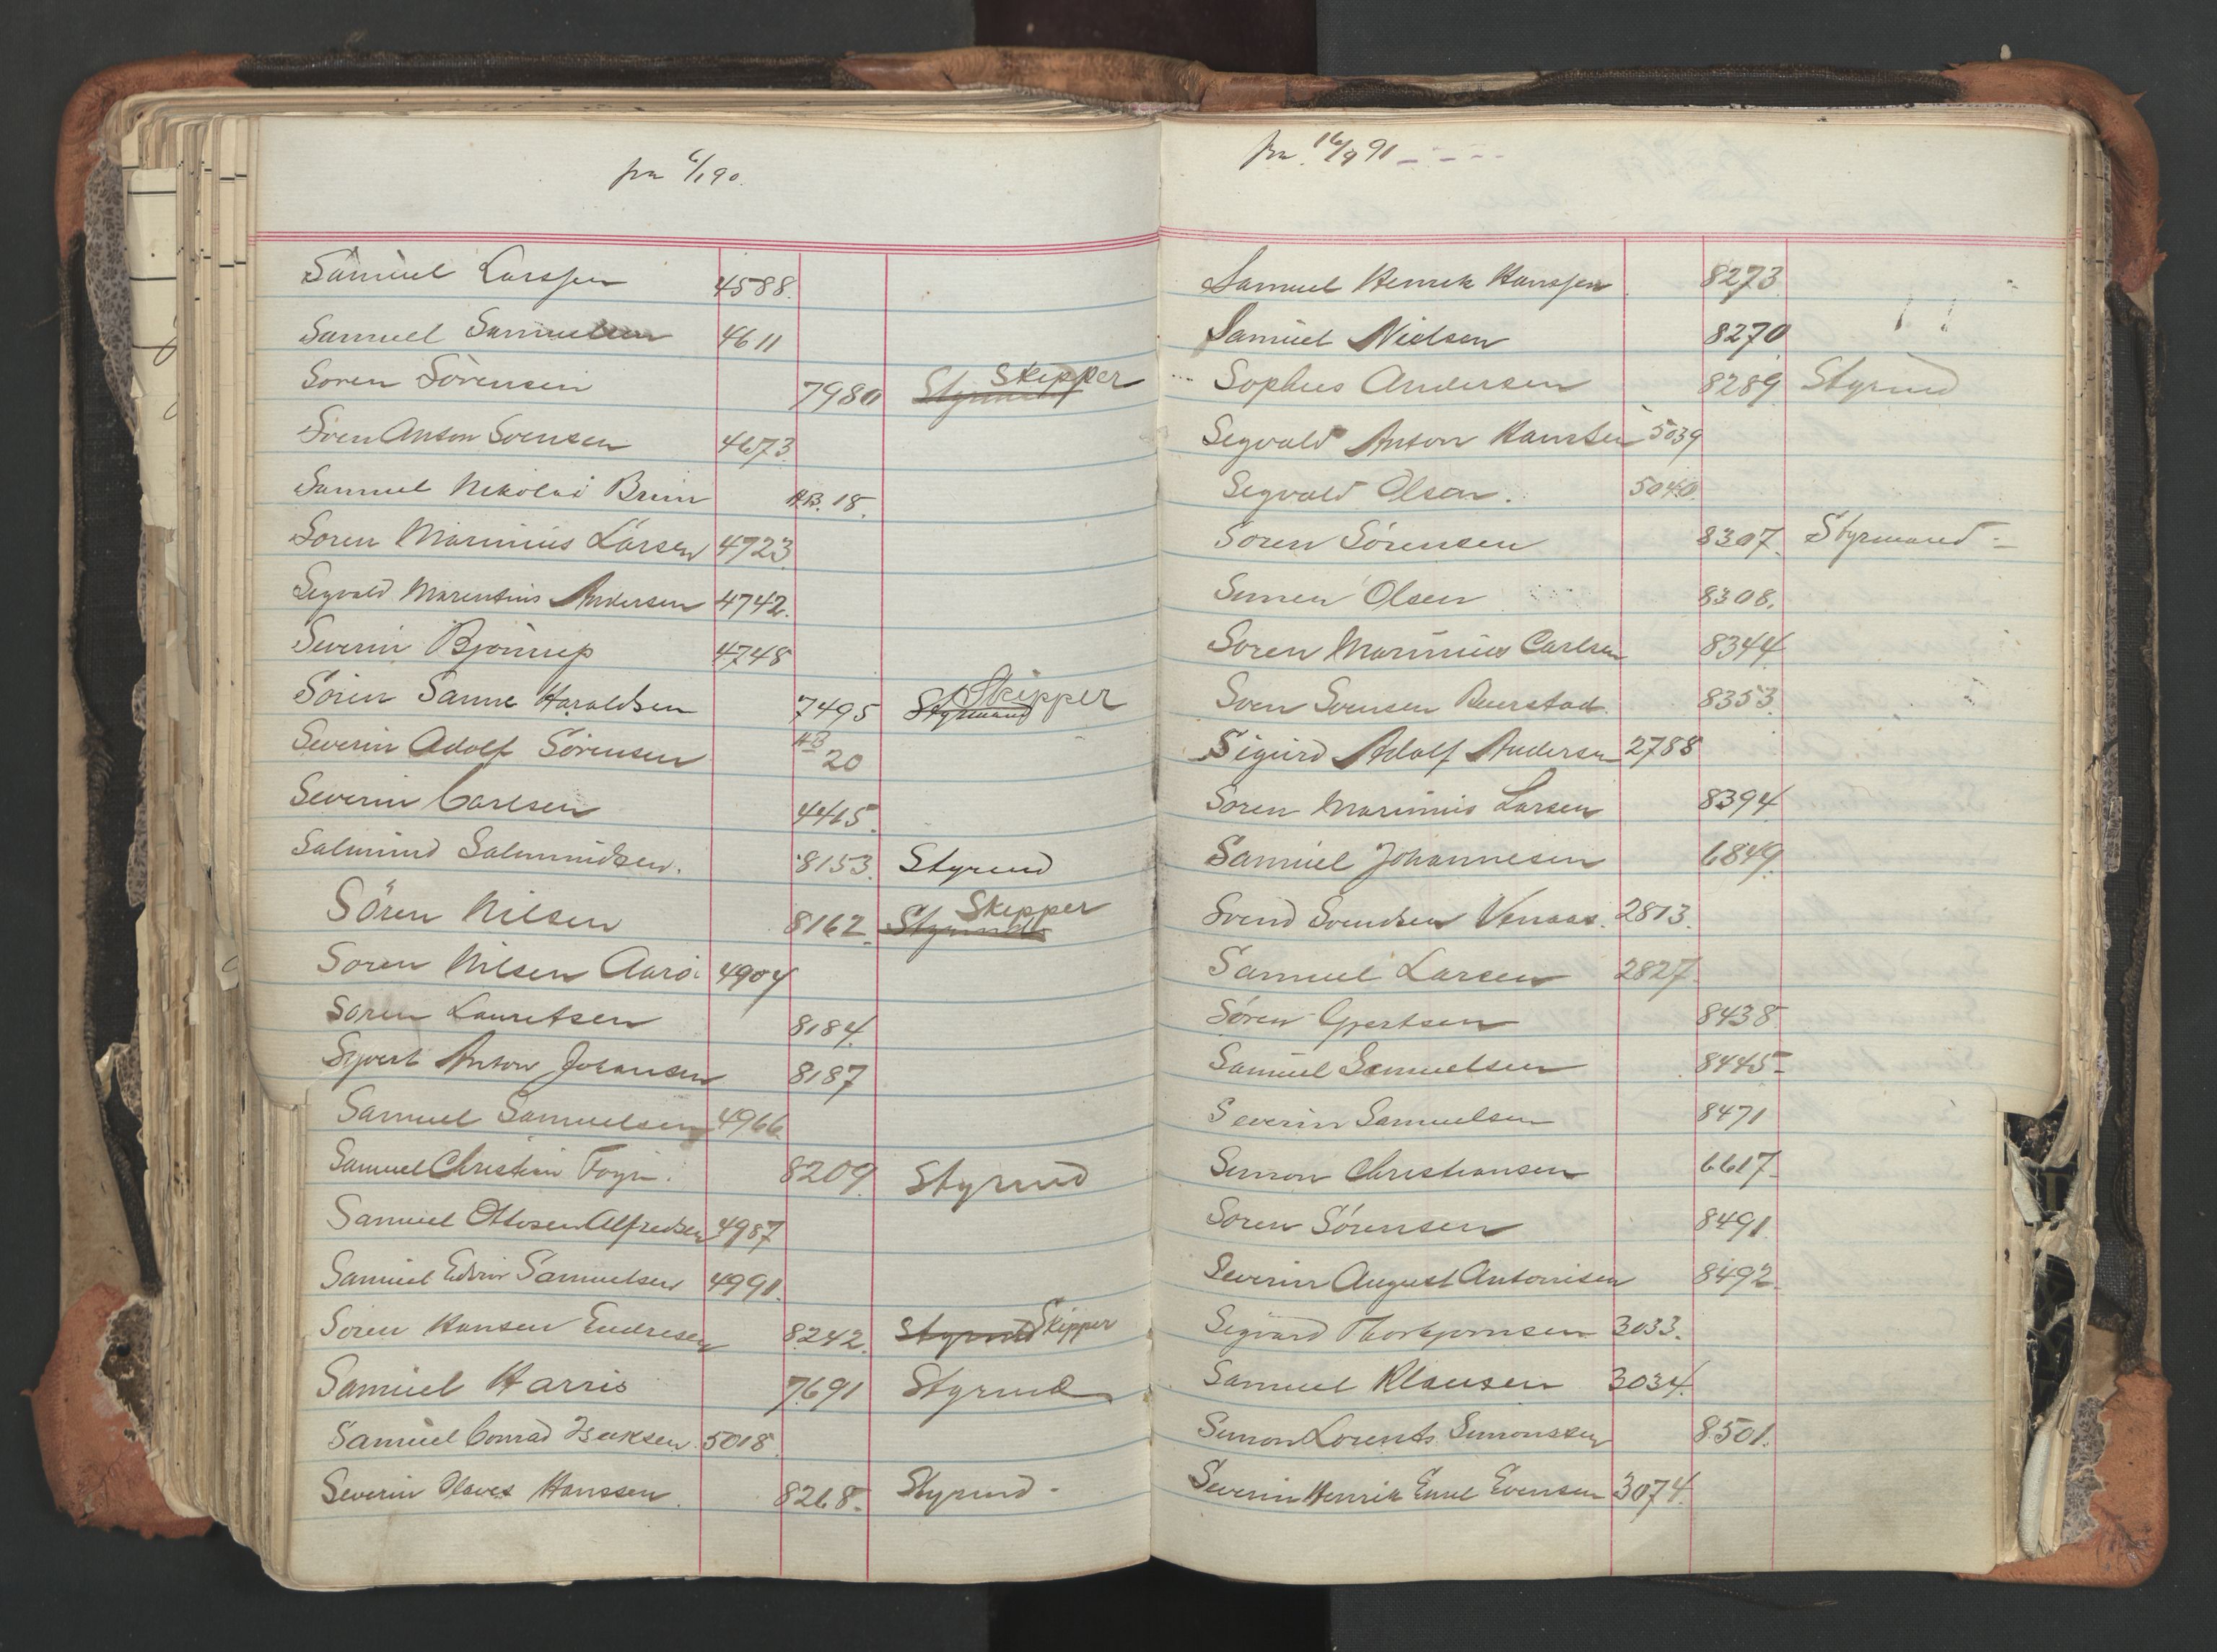 fra 6/1 90.
Samuel Larssen 4588.
Samuel Samuelsen 4611
Soren Sörensen 7980 Styrmand Skipper
Sven Anton Svensen 4673.
Samuel Nikolai Bruin A.B. 18.
Soren Marinius Larsen 4723.
Sigvald Marentius Andersen 4742.
Severin Bjönnep 4748
Sören Sanne Haraldsen 7495 Styrmand Skipper
Severin Adolf Sörensen AB 20
Severin Carlsen 4465.
Salmund Salmundsen. 8153. Styrmd
Sören Nilsen 8162. Styrmd Skipper
Soren Nilsen Aarö. 4904
Soren Lauritsen 8184.
Syvert Anton Johansen 8187
Samuel Samuelsen 4966
Samuel Christian Foyn. 8209. Styrmd
Samuel Ottosen Alfredsen 4987
Samuel Edvin Samuelsen 4991.
Soren Hansen Endresen 8242. Styrmd Skipper
Samuel Harris 7691 Styrmd
Samuel Conrad Isaksen. 5018.
Severin Olaves Hanssen. 8268. Styrmd -
fra 16/9 91 - - - -
Samuel Henrik Hanssen 8273.
Samuel Nielsen 8270
Sophus Andersen 8289. Styrmd
Segvald Anton Hansen 5039
Segvald Olsen. 5040.
Soren Sörensen 8307. Styrmand -
Simen Olsen 8308.
Soren Marinius Carlsen 8344.
Sven Svensen Beerstad. 8353.
Sigurd Adolf Andersen 2788
Soren Marinius Larsen 8394.
Samuel Johannesen 6849.
Svend Svendsen Venaas. 2813.
Samuel Larsen 2827.
Sören Gjertsen 8438
Samuel Samuelsen 8445-
Severin Samuelsen 8471
Simon Christiansen 6617-
Soren Sörensen 8491.
Severin August Antonisen 8492.
Sigvard Thorbjornsen 3033.
Samuel Klausen 3034.
Simon Lorents Simonsen 8501.
Severin Henrik Emil Evensen 3074.